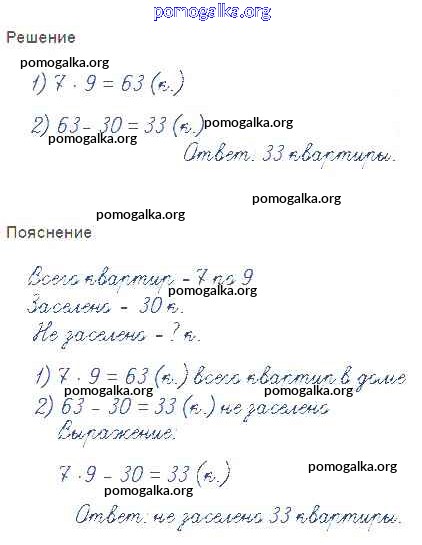 pomogalka.org
Решение
pomogalka.org
1) 7 · 9 = 63 (к.)
2) 63 – 30 = 33 (к.) pomogalka.org
pomogalka.org
Ответ: 33 квартиры.
pomogalka.org
pomogalka.org
Пояснение
Всего квартир – 7 по 9
pomogalka.org
Заселено – 30 к.
Не заселено – ? к.
1) 7 · 9 = 63 (к.) всего квартир в доме
pomogalka.org pomogalka.org
2) 63 – 30 = 33 (к.) не заселено
Выражение:
7 · 9 – 30 = 33 (к.)
pomogalka.org
pomogalka.org
Ответ: не заселено 33 квартиры.